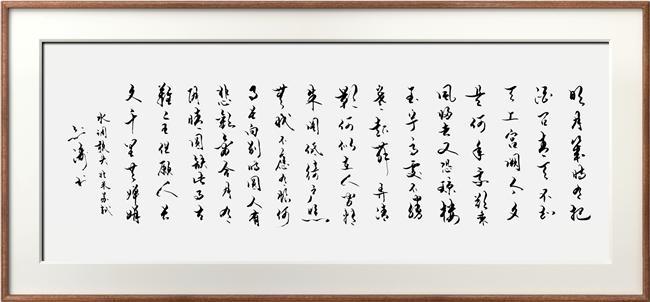 明月幾時有把
酒问青天不知
天上宫阙今夕
是何年我欲乘
風歸去又恐瓊樓
玉宇高處不勝
寒起舞弄清
影何似在人間轉
朱阁低绮户照
無眠不應有恨何
事长向别時圆人有
悲歡离合月有
陰晴圆缺此事古
難全但願人长
久千里共嬋娟
水调歌头 北宋苏轼
书